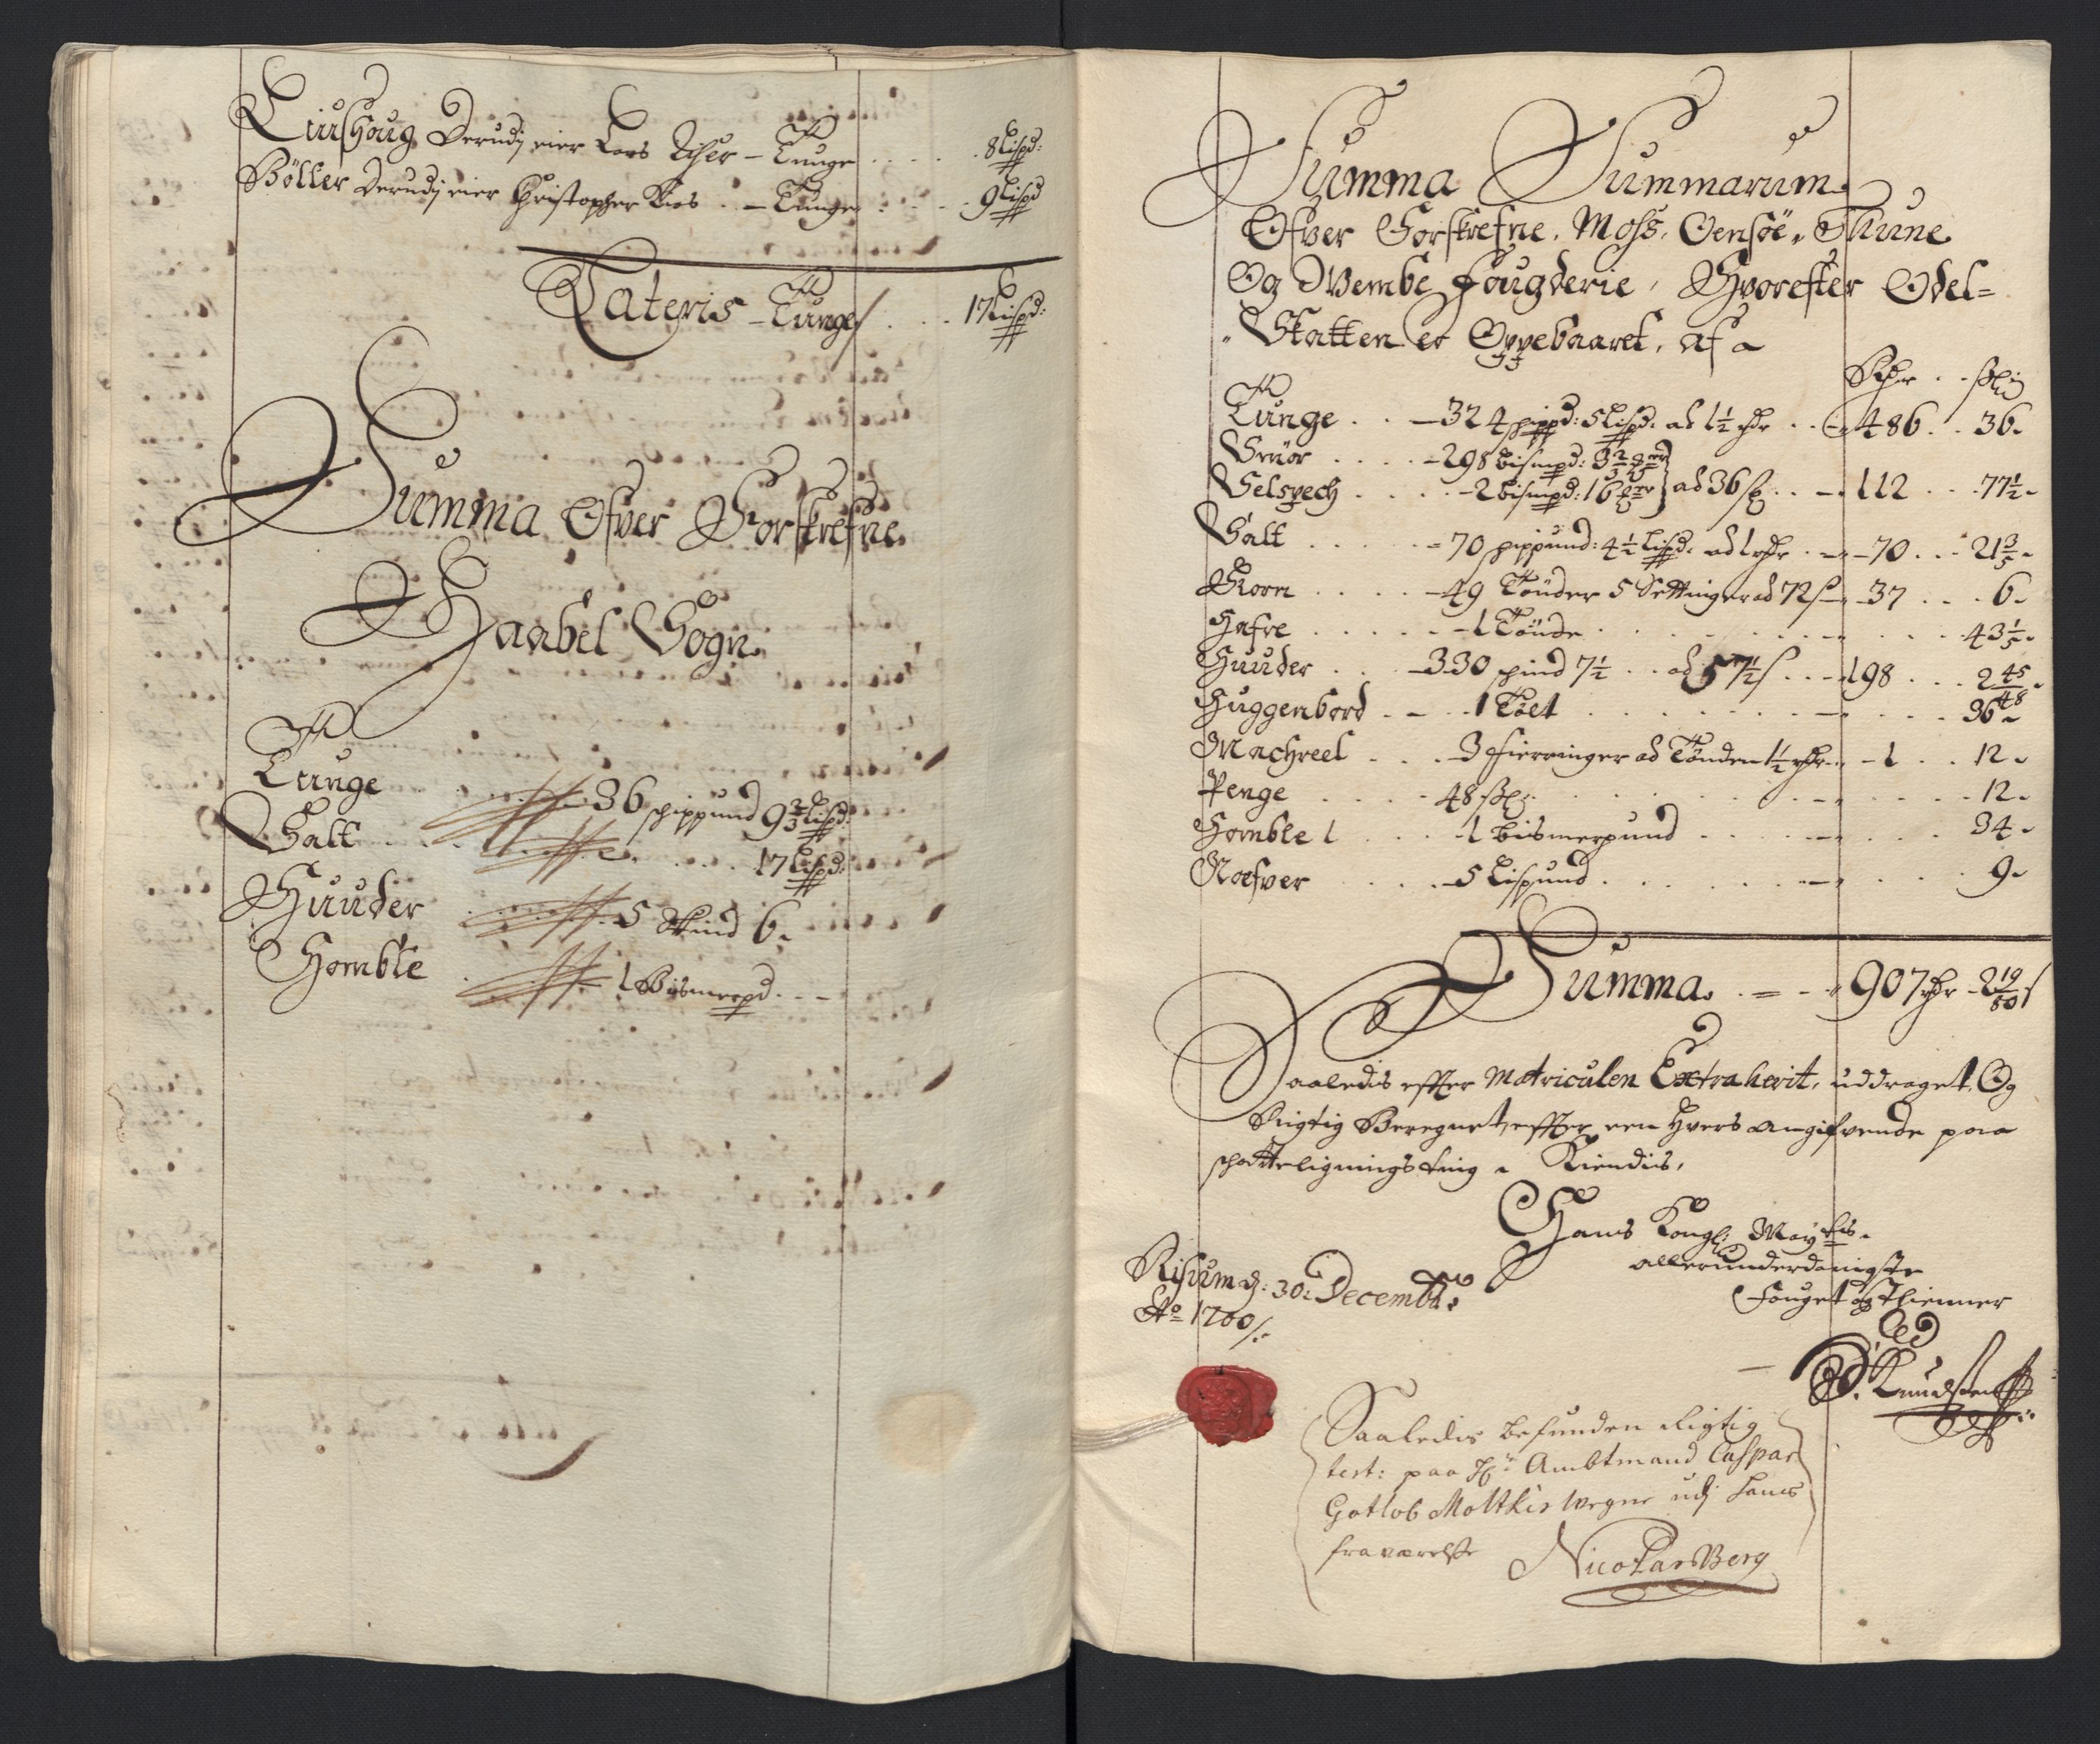 Luishoug Derudj eier Lars Riser – Tunge . . . 8 Lispd:
Böller Derudj eier Christopher Ries . – Tunge . . . 9 Lispd
Lateris – Tunge . . . 17 Lispd:
Summa Ofver Forskrefne
Haabel Sogn.
Tunge . . . 36 schippund 9 2/3 Lispd:
Salt . . . 17 Lispd:
Huuder . . . 5 Skind 6.
Homble . . . 1 Bismerpd . . –
Summa Summarum
Ofver Forskrefne, Moss, Oensöe, Thune
Og Wembe Fougderie, Hvorefter Odel=
Skatten er Oppebaaret, af
Rdr . . sk
Tunge . . – 324 schippd: 5 Lispd: ad 1 1/2 rdr . . 486 . . 36.
Smör . . . . – 298 bismpd: 3 2/3
Selspech . . . . – 2 bismpd: 16 ad 36 s . . – 112 . . . 77 1/2.
Salt . . . . = 70 schippund: 4 1/2 Lispd. ad 1 rdr . – 70 . . . 21 3/5.
Korn . . . . – 49 Tönder 5 Settinger ad 72 s – 37 . . . . 6.
Hafre . . . . . – 1 Tönde . . . . . 43 1/5.
Huuder . . . – 330 schind 7 1/2 . . ad 57 1/2 s . . – 198 . . . 2 45/48.
Huggenbord . – . . 1 Tölt . . . . . 36.
Machreel . . . – 3 Fierringer ad Tönden 1 1/2 rdr – 1 . . 12.
Penge . . . . 48 sk . . . . . 12.
Homble 1 . . . . – 1 bismerpund . . . . 34.
Nefver . . . . – 5 Lispund . . . . . 9.
Summa. . = – – 907 rdr – 2 19/80 s
Saaledis effter Matriculen Extraherit, uddraget, Og
Rigtig Beregnet, effter een hvers angifvende paa
schatteligningsting. Kiendis,
Hans Kongl: Mayts.
allerunderdanigste
Fouget og Thienner
Risum d: 30: Decembr:
Ao 1700/.
Knudsen
Saaledis befunden Rigtig
test: paa Hr. Ambtmand Caspar
Gotlob Moltkis Vegne udj hans
fraværelse Nicolas Berg